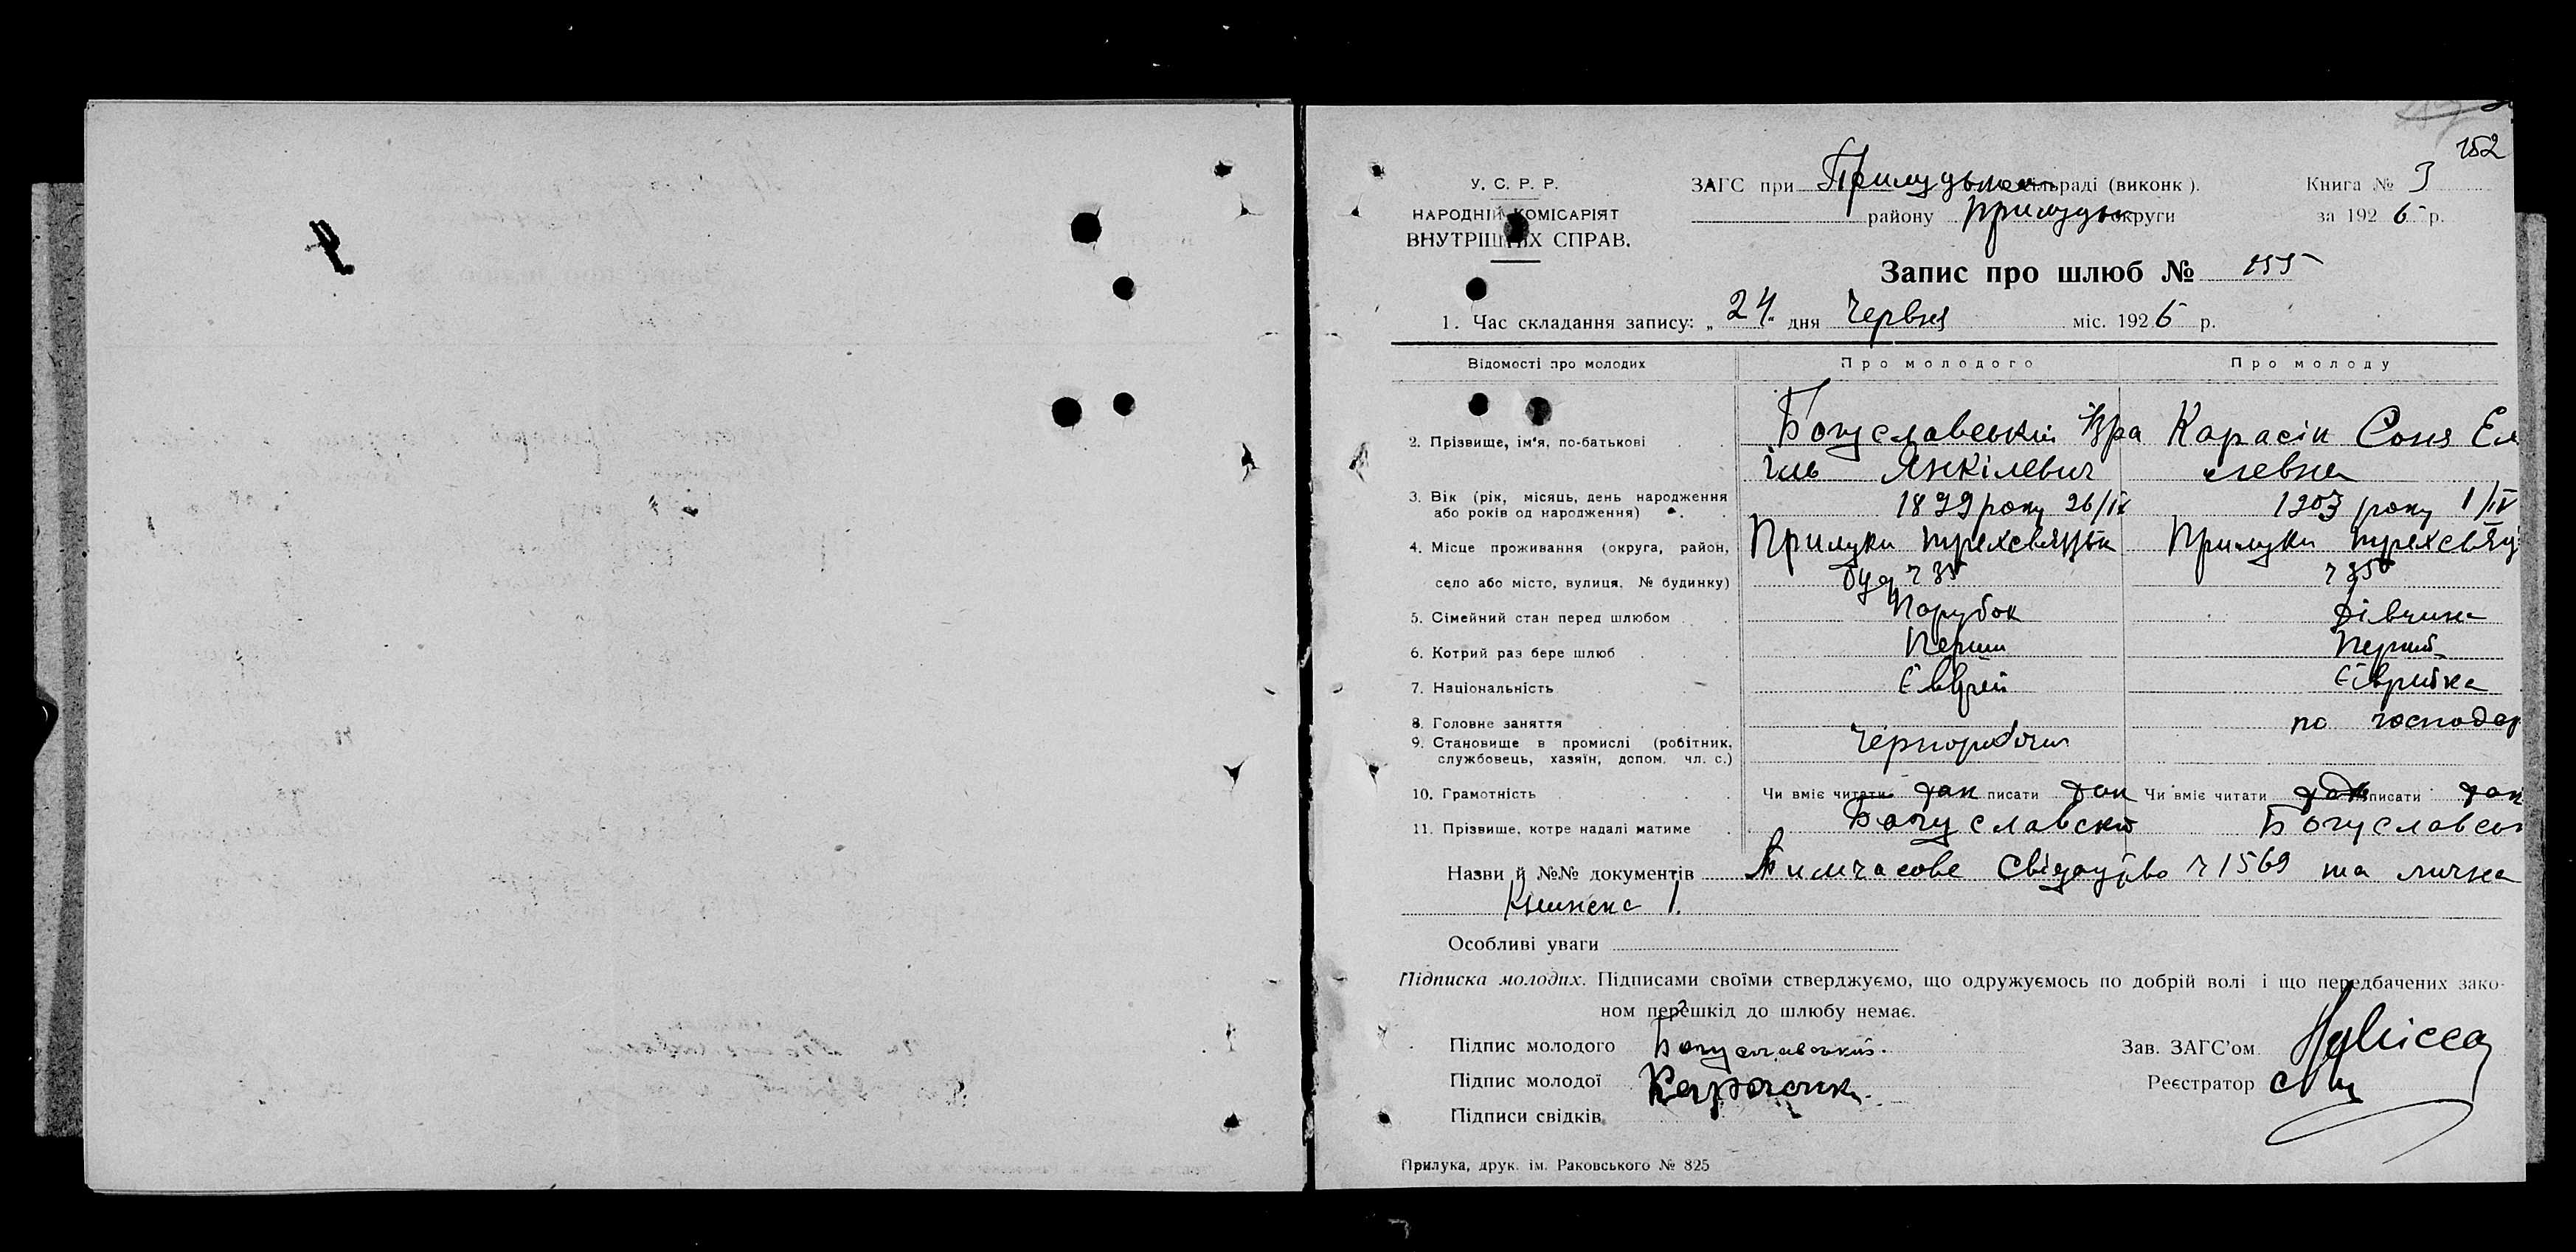 152
У. С. Р. Р.
НАРОДНІЙ КОМІСАРІЯТ
ВНУТРІШНІХ СПРАВ.
ЗАГС при Прилуцьком сільраді (виконк).
району Прилуцько округи
Книга № 3
за 1926 р.
Запис про шлюб № 155
1. Час складання запису: „24“ дня Червня міс. 1926 р.
Відомості про молодих Про молодого Про молоду
2. Прізвище, ім'я, по-батькові Богуславський Ізра Карасік Соня Ел
їль Янкілевич левна
3. Вік (рік, місяць, день народження 1899 року 26/IX 1903 року 1/IV
або років од народження)
4. Місце проживання (округа, район, Прилуки трехсвяцька Прилуки трехсвяц
село або місто, вулиця, № будинку) буд ч 35 ч 35
5. Сімейний стан перед шлюбом Парубок Дівчина
6. Котрий раз бере шлюб Перший Перший
7. Національність Єврей Єврейка
8. Головне заняття по господар
9. Становище в промислі (робітник, Чернорабочий
службовець, хазяїн, допом. чл. с.)
10. Грамотність Чи вміє читати так писати так Чи вміє читати так писати так
11. Прізвище, котре надалі матиме Богуславский Богуславськ
Назви й №№ документів Тимчасове Свідоцтво ч 1569 та лична
Книжка 1.
Особливі уваги
Підписка молодих. Підписами своїми стверджуємо, що одружуємось по добрій волі і що передбачених зако-
ном перешкід до шлюбу немає.
Підпис молодого Богуславский.
Зав. ЗАГС'ом
Підпис молодої Карасик.
Реєстратор
Підписи свідків
Прилука, друк. ім. Раковського № 825